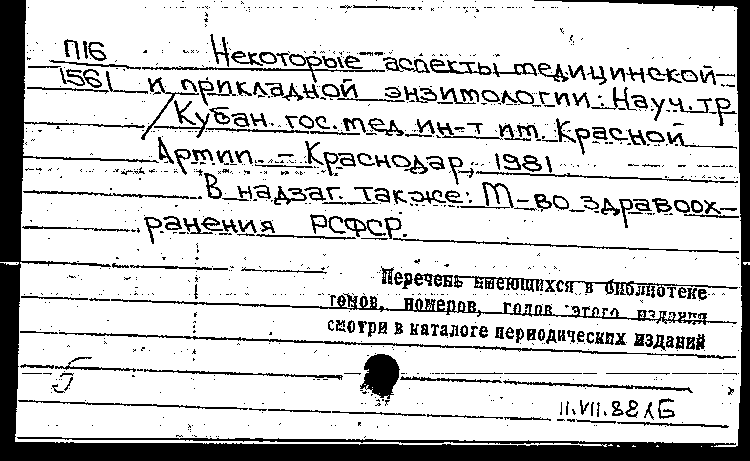 П16 Некоторые аспекты медицинской
1561 и прикладной энзимологии: Науч. тр.
/Кубан. гос. мед. ин-т им. Красной
Армии. - Краснодар, 1981
В надзаг. также: М-во здравоох-
ранения РСФСР.
Перечень имеющихся в библиотеке
томов, номеров, годов этого издания
смотри в каталоге периодических изданий
5
11.VII.88 ЛБ